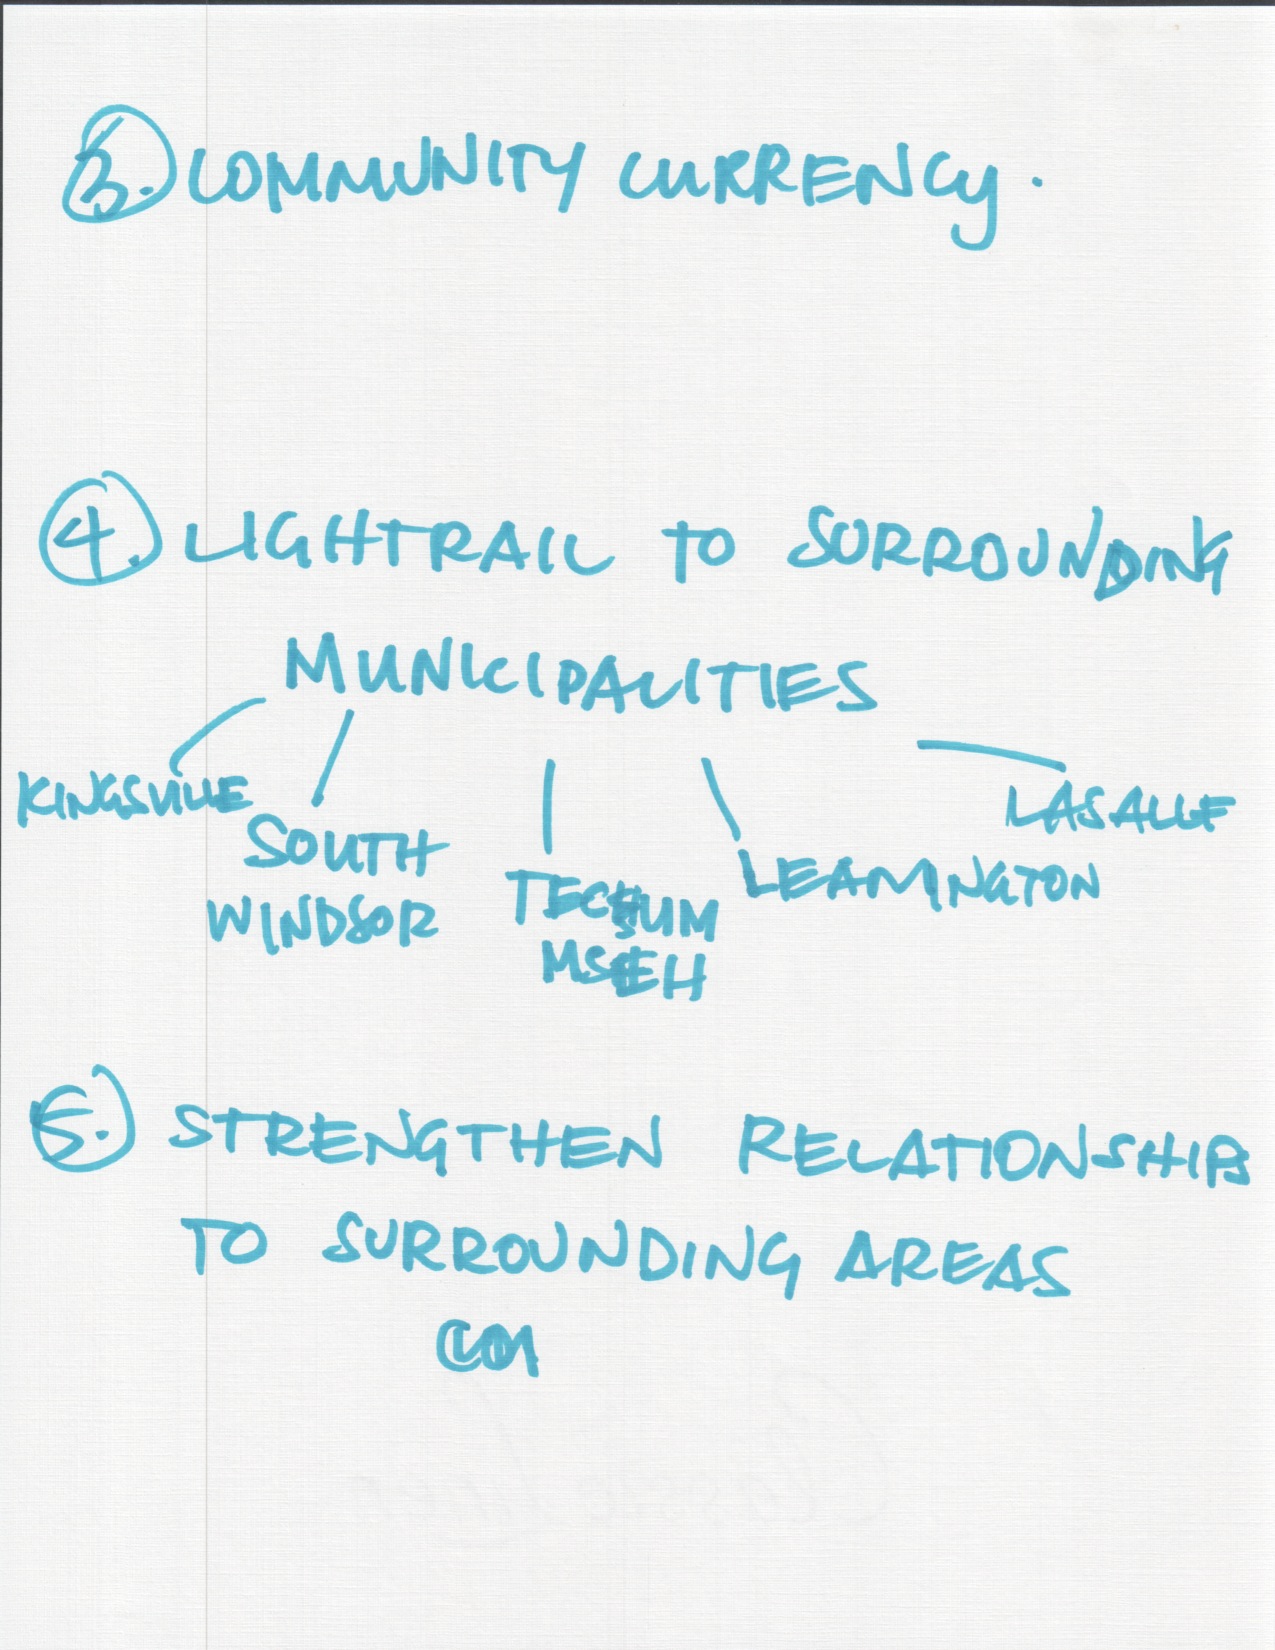 3. COMMUNITY CURRENCY.
4. LIGHTRAIL TO SURROUNDING
MUNICIPALITIES
KINGSVILLE
SOUTH
WINDSOR
TECSUM
MSEH
LEAMINGTON
LASALLE
5. STRENGTHEN RELATIONSHIPS
TO SURROUNDING AREAS